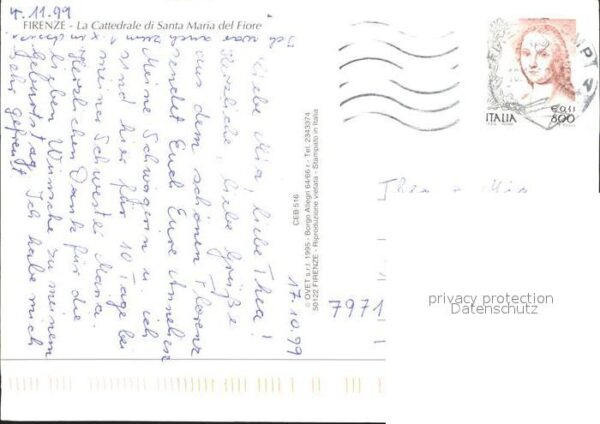 4.11.99
FIRENZE - La Cattedrale di Santa Maria del Fiore
17.10.99
Liebe Mia, liebe Thea!
Herzliche, liebe Grüße
aus dem schönen Florenz
sendet Euch Eure Annelies
Meine Schwägerin u. ich
sind hier für 10 Tage bei
meiner Schwester Maria.
Herzlichen Dank für die
lieben Wünsche zu meinem
Geburtstag. Ich habe mich
sehr gefreut.
Ich war auch zum 1.x in
CEB 516
© OVET s.r.l. 1995 - Borgo Allegri 64/66 r - Tel. 2343374
50122 FIRENZE - Riproduzione vietata - Stampato in Italia
ITALIA
€ 0,41
800
Thea Mia
7971
privacy protection
Datenschutz